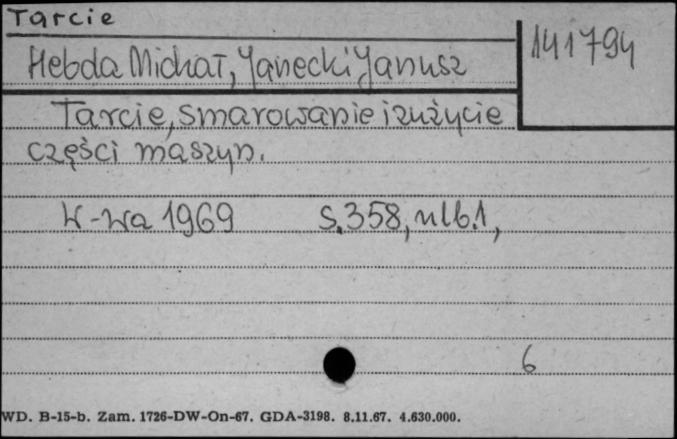 Tarcie
141794
Hebda Michał, Janecki Janusz
Tarcie, smarowanie i zużycie
części maszyn.
W-wa 1969 s. 358, nlb. 1,
6
WD. B-15-b. Zam. 1726-DW-On-67. GDA-3198. 8.11.67. 4.630.000.